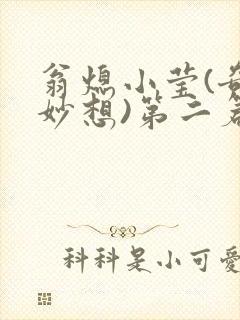 翁熄小莹(
妙想)第二
科科是小可爱